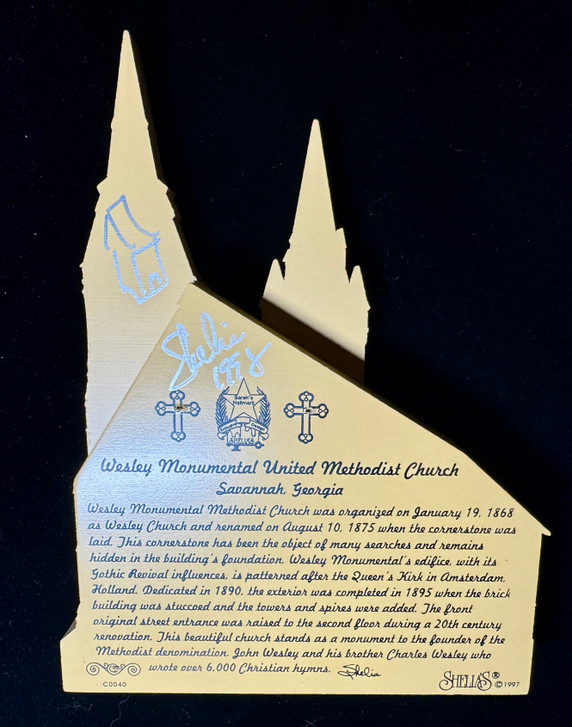 Shelia
1998
Sarah's
Hallmark
SHELIA'S
Wesley Monumental United Methodist Church
Savannah, Georgia
Wesley Monumental Methodist Church was organized on January 19, 1868
as Wesley Church and renamed on August 10, 1875 when the cornerstone was
laid. This cornerstone has been the object of many searches and remains
hidden in the building's foundation. Wesley Monumental's edifice, with its
Gothic Revival influences, is patterned after the Queen's Kirk in Amsterdam,
Holland. Dedicated in 1890, the exterior was completed in 1895 when the brick
building was stuccoed and the towers and spires were added. The front
original street entrance was raised to the second floor during a 20th century
renovation. This beautiful church stands as a monument to the founder of the
Methodist denomination, John Wesley and his brother Charles Wesley who
wrote over 6,000 Christian hymns. Shelia
C0040
SHELIA'S® ©1997